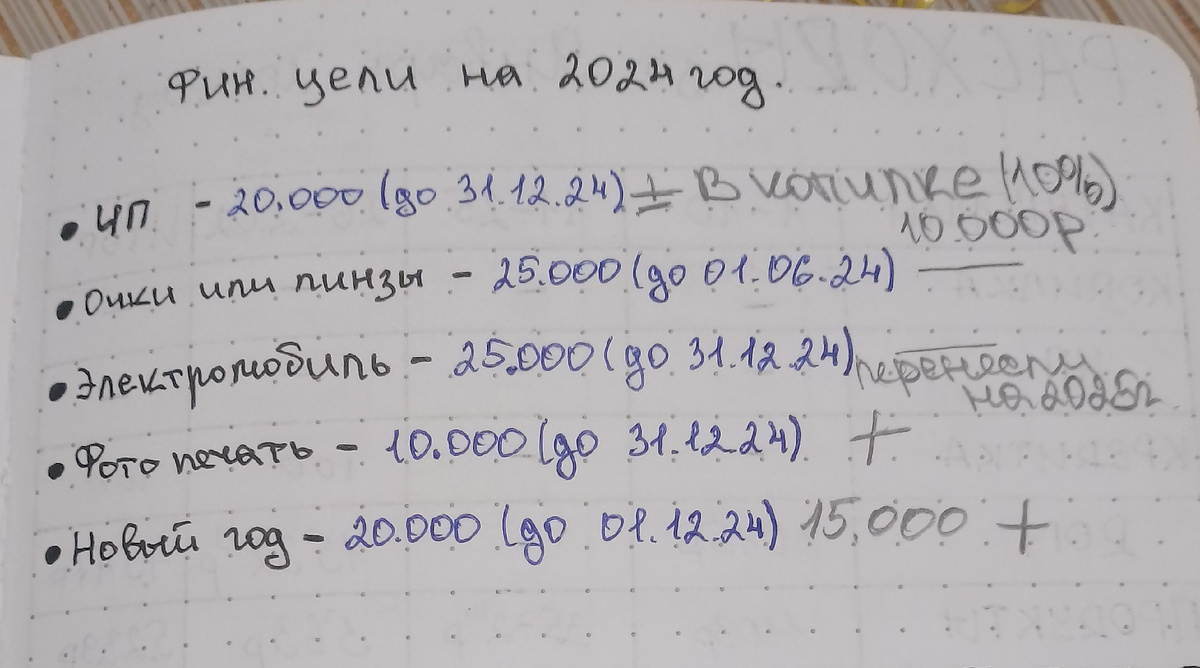 Фин. цели на 2024 год.
• ЧП - 20.000 (до 31.12.24) ± В копилке (10%)
10.000р.
• Очки или линзы - 25.000 (до 01.06.24) —
• Электромобиль - 25.000 (до 31.12.24) — перенесли
на 2025г
• Фото печать - 10.000 (до 31.12.24) +
• Новый год - 20.000 (до 01.12.24) 15.000 +